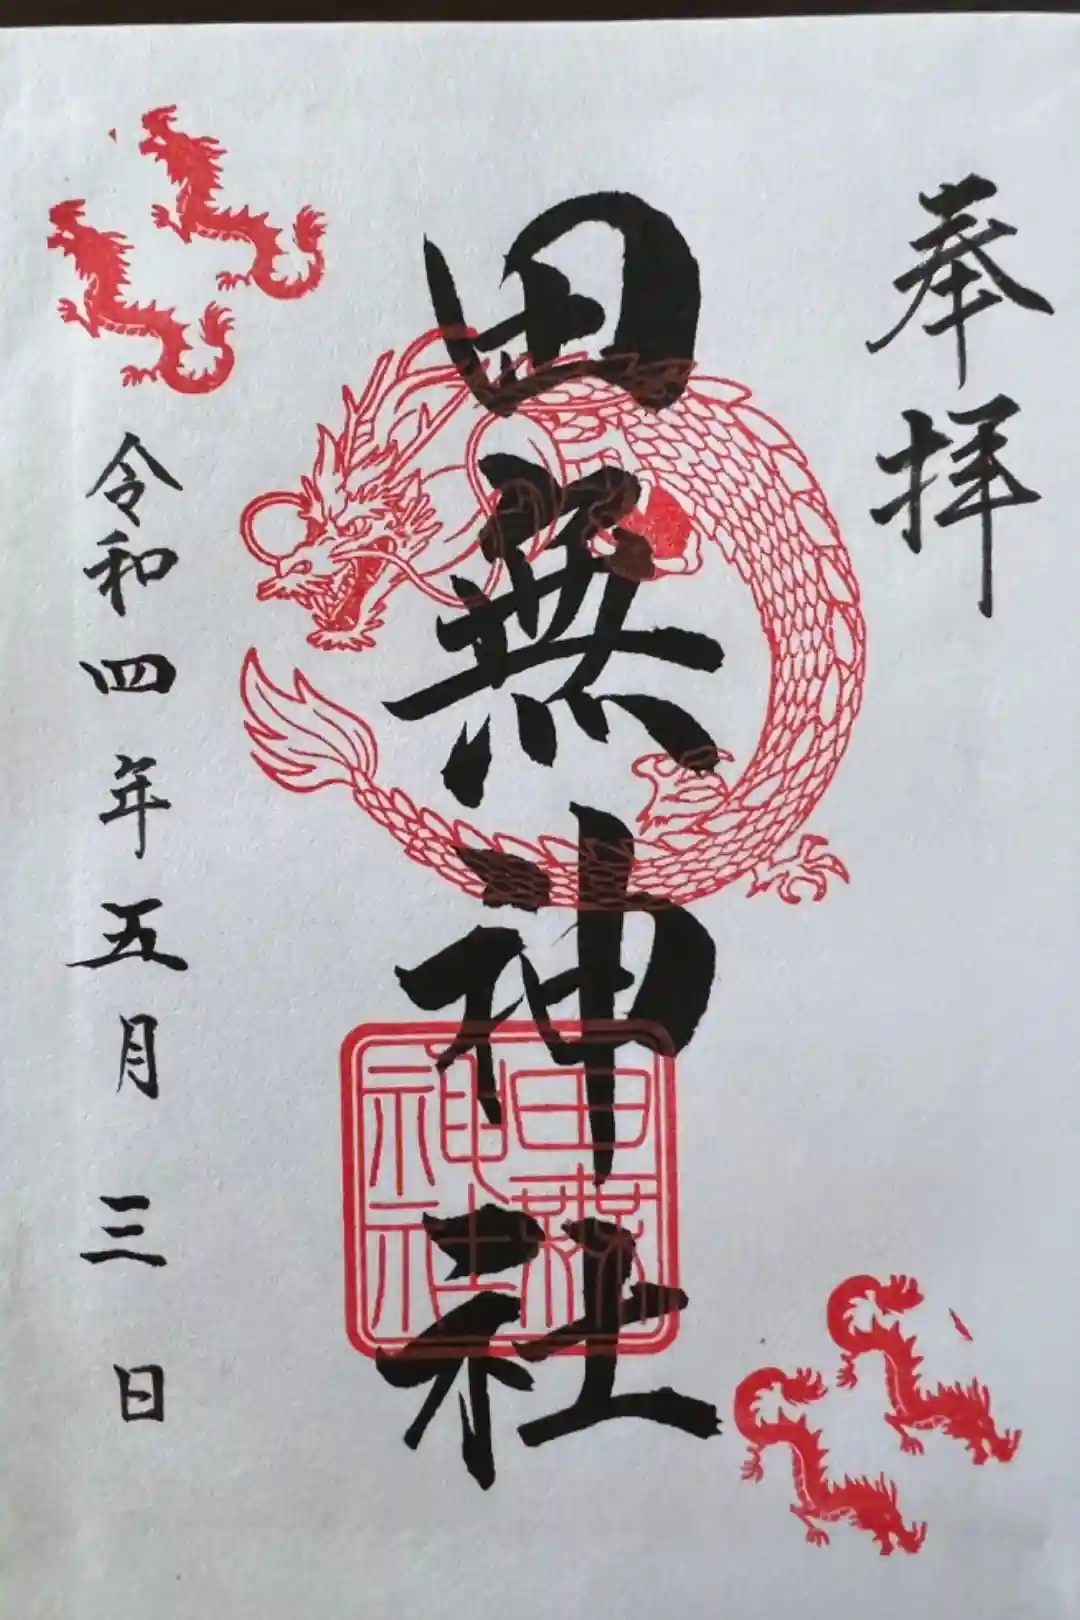 奉拝
田無神社
田無神社
令和四年五月三日